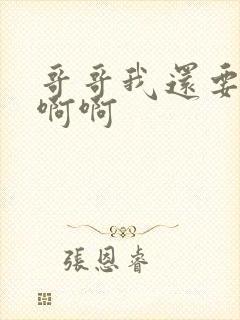 哥哥我還要
啊啊
張恩睿